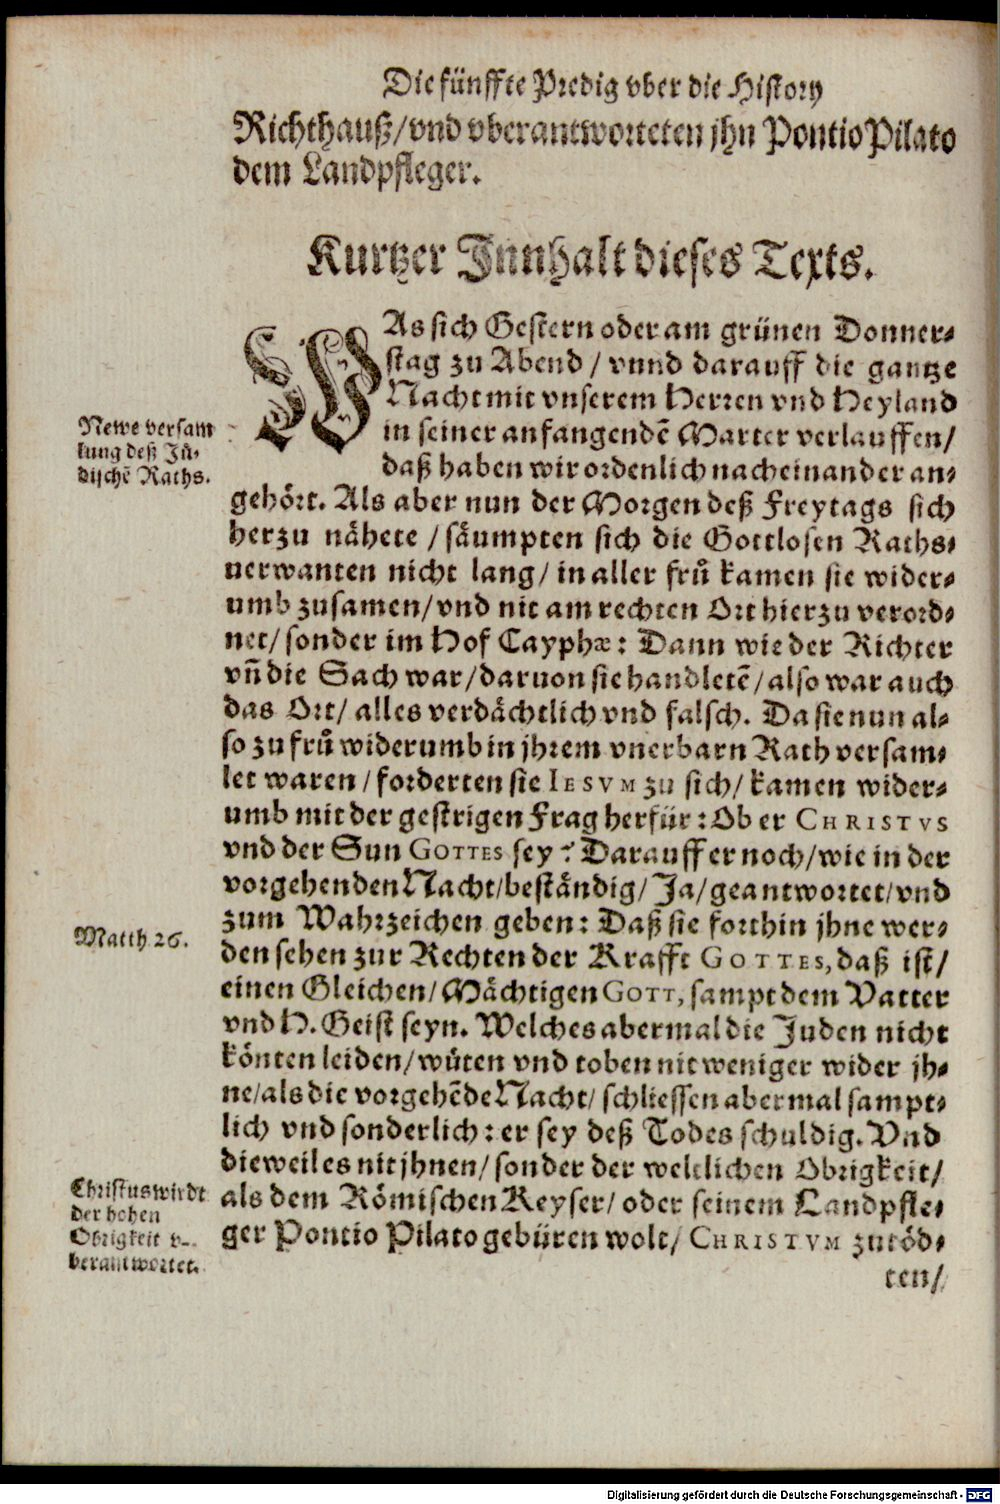 Die fünffte Predig vber die History
Richthauß/vnd vberantworteten jhn Pontio Pilato
dem Landpfleger.
Kurtzer Innhalt dieses Texts.
WAs sich Gestern oder am grünen Donner-
stag zu Abend / vnnd darauff die gantze
Nacht mit vnserem Herren vnd Heyland
in seiner anfangendẽ Marter verlauffen/
daß haben wir ordenlich nacheinander an-
Newe versam
lung deß Jü-
dischẽ Raths.
gehört. Als aber nun der Morgen deß Freytags sich
herzu nähete / säumpten sich die Gottlosen Raths-
uerwanten nicht lang/ in aller frů kamen sie wider-
umb zusamen/vnd nit am rechten Ort hierzu verord-
net/ sonder im Hof Cayphæ: Dann wie der Richter
vñ die Sach war/daruon sie handletẽ/also war auch
das Ort/ alles verdächtlich vnd falsch. Da sie nun al-
so zu frů widerumb in jhrem vnerbarn Rath versam-
let waren / forderten sie IESVM zu sich/ kamen wider-
umb mit der gestrigen Frag herfür: Ob er CHRISTVS
vnd der Sun GOTTES sey? Darauff er noch/wie in der
vorgehenden Nacht/beständig/ Ja/geantwortet/vnd
zum Wahrzeichen geben: Daß sie forthin jhne wer-
Matth 26.
den sehen zur Rechten der Krafft GOTTES, daß ist/
einen Gleichen/ Mächtigen GOTT, sampt dem Vatter
vnd H. Geist seyn. Welches abermal die Juden nicht
könten leiden/wůten vnd toben nit weniger wider jh-
ne/als die vorgehẽde Nacht/ schliessen abermal sampt-
lich vnd sonderlich: er sey deß Todes schuldig. Vnd
dieweil es nit jhnen/ sonder der weltlichen Obrigkeit/
als dem Römischen Keyser/ oder seinem Landpfle-
ger Pontio Pilato gebüren wolt/ CHRISTVM zu töd-
Christus wirdt
der hohen
Obrigkeit v-
berantwortet.
ten/
Digitalisierung gefördert durch die Deutsche Forschungsgemeinschaft - DFG